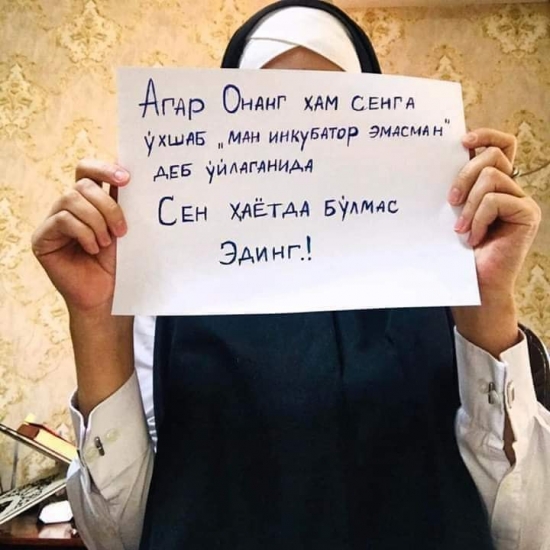 Агар Онанг ҳам сенга
ўхшаб „ман инкубатор эмасман"
деб ўйлаганида
Сен ҳаётда бўлмас
Эдинг.!